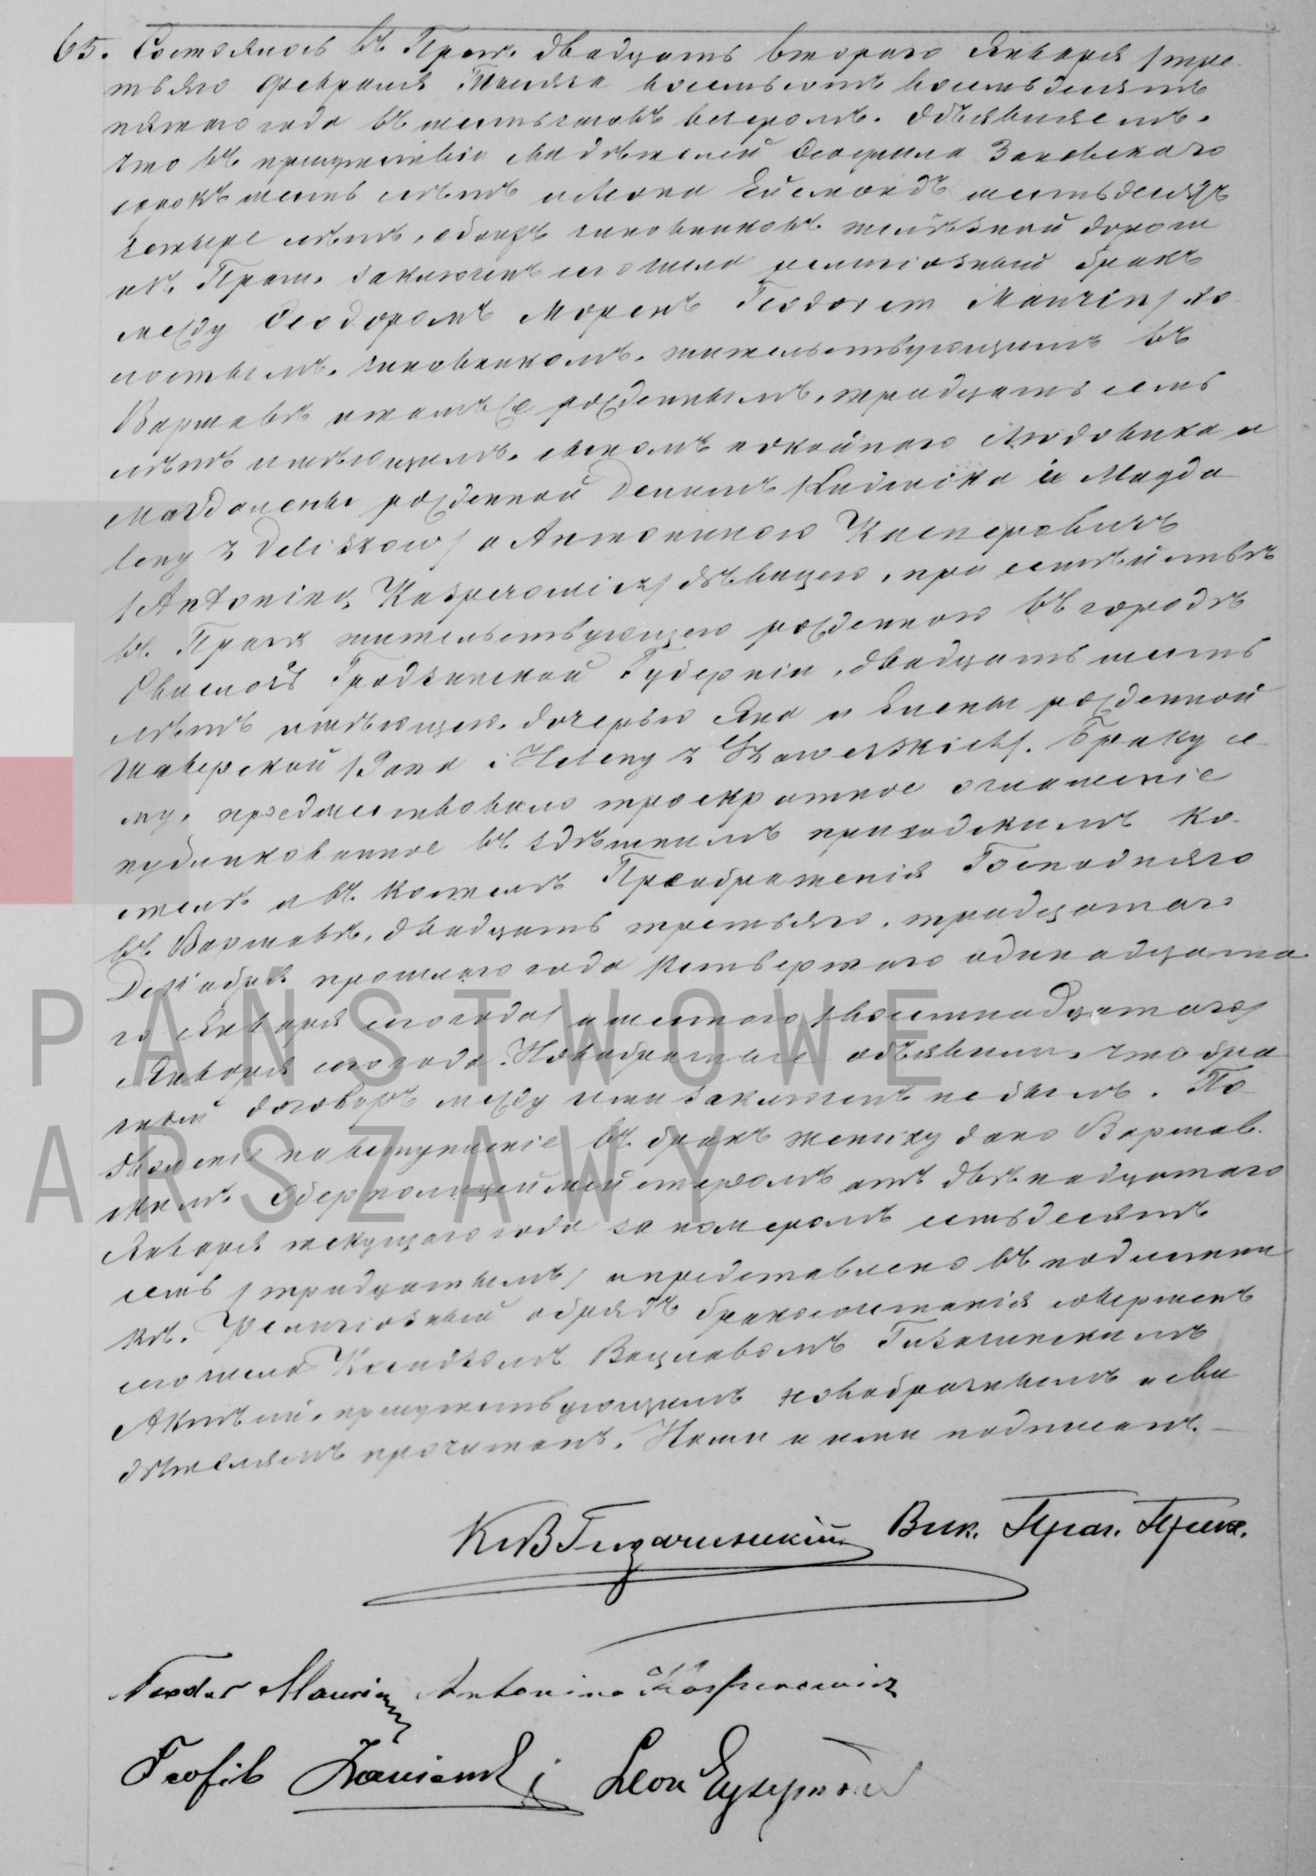 65. Состоялось въ Праге двадцать втораго Января /тре-
тьяго Февраля/ Тысяча восемьсотъ восемьдесятъ
пятаго года въ шесть часовъ вечеромъ. Объявляемъ,
что въ присутствіи свидѣтелей Феофила Заневскаго
сорокъ шесть лѣтъ и Леона Ейсмондъ шестьдесятъ
четыре лѣтъ, обоихъ чиновниковъ желѣзной дороги
въ Праге, заключенъ сего числа религіозный бракъ
между Феодоромъ Моренъ /Teodorem Maurin/ хо-
лостымъ, чиновникомъ, жительствующимъ въ
Варшавѣ и тамъ же рожденнымъ, тридцать семь
лѣтъ имѣющимъ, сыномъ покойнаго Людовика и
Магдалены рожденной /Ludwika i Magda-
leny z / и Антониною Касперовичъ
/Antoniną Kasperowicz/ дѣвицею, при семействѣ
въ Праге жительствующею рожденною въ городѣ
Свислочь Гродзенской Губерніи, двадцать шесть
лѣтъ имѣющею, дочерью Яна и Елены рожденной
/Jana i Heleny z /. Браку се-
му предшествовало троекратное оглашеніе
публикованное въ здѣшнемъ приходскомъ ко-
стелѣ и въ костелѣ Преображенія Господняго
въ Варшавѣ, двадцать третьяго, тридцатаго
Декабря прошлаго года четвертаго одинадцата-
го Января сего года и шестаго /восемнадцатаго/
Января сего года. Новобрачные объявили, что бра-
чный договоръ между ими заключенъ не былъ. По-
зволеніе на вступленіе въ бракъ жениху дано Варшав-
скимъ Оберполицеймейстеромъ отъ двѣнадцатаго
Января текущаго года за номеромъ семьдесятъ
семь /тридцатымъ/ и представлено въ подлинни-
кѣ. Религіозный обрядъ бракосочетанія совершенъ
сего числа Ксендзомъ Вацлавомъ
Актъ сей, присутствующимъ новобрачнымъ и сви-
дѣтелямъ прочитанъ, Нами и ими подписанъ. —
Вик. Праг. Прих.
Teodor Maurin Antonina Kasperowicz
Teofil Zaniewski Leon
PAŃSTWOWE
ARSZAWY